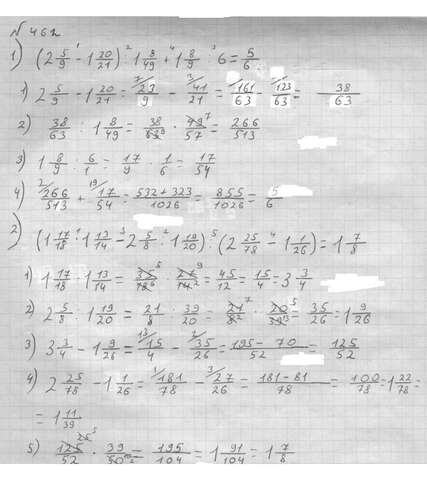 № 462
1) (2 5/9 - 1 20/21) : 1 8/49 + 1 8/9 : 6 = 5/6
1) 2 5/9 - 1 20/21 = 23/9 - 41/21 = 161/63 - 123/63 = 38/63
2) 38/63 : 1 8/49 = 38/63 · 49/57 = 266/513
3) 1 8/9 : 6/1 = 17/9 · 1/6 = 17/54
4) 266/513 + 17/54 = 532+323/1026 = 855/1026 = 5/6
2) (1 17/18 · 1 13/14 - 2 5/8 : 1 19/20) : (2 25/78 - 1 1/26) = 1 7/8
1) 1 17/18 · 1 13/14 = 35/18 · 27/14 = 45/12 = 15/4 = 3 3/4
2) 2 5/8 : 1 19/20 = 21/8 : 39/20 = 21/8 · 20/39 = 35/26 = 1 9/26
3) 3 3/4 - 1 9/26 = 15/4 - 35/26 = 195-70/52 = 125/52
4) 2 25/78 - 1 1/26 = 181/78 - 27/26 = 181-81/78 = 100/78 = 1 22/78 =
= 1 11/39
5) 125/52 · 39/50 = 195/104 = 1 91/104 = 1 7/8